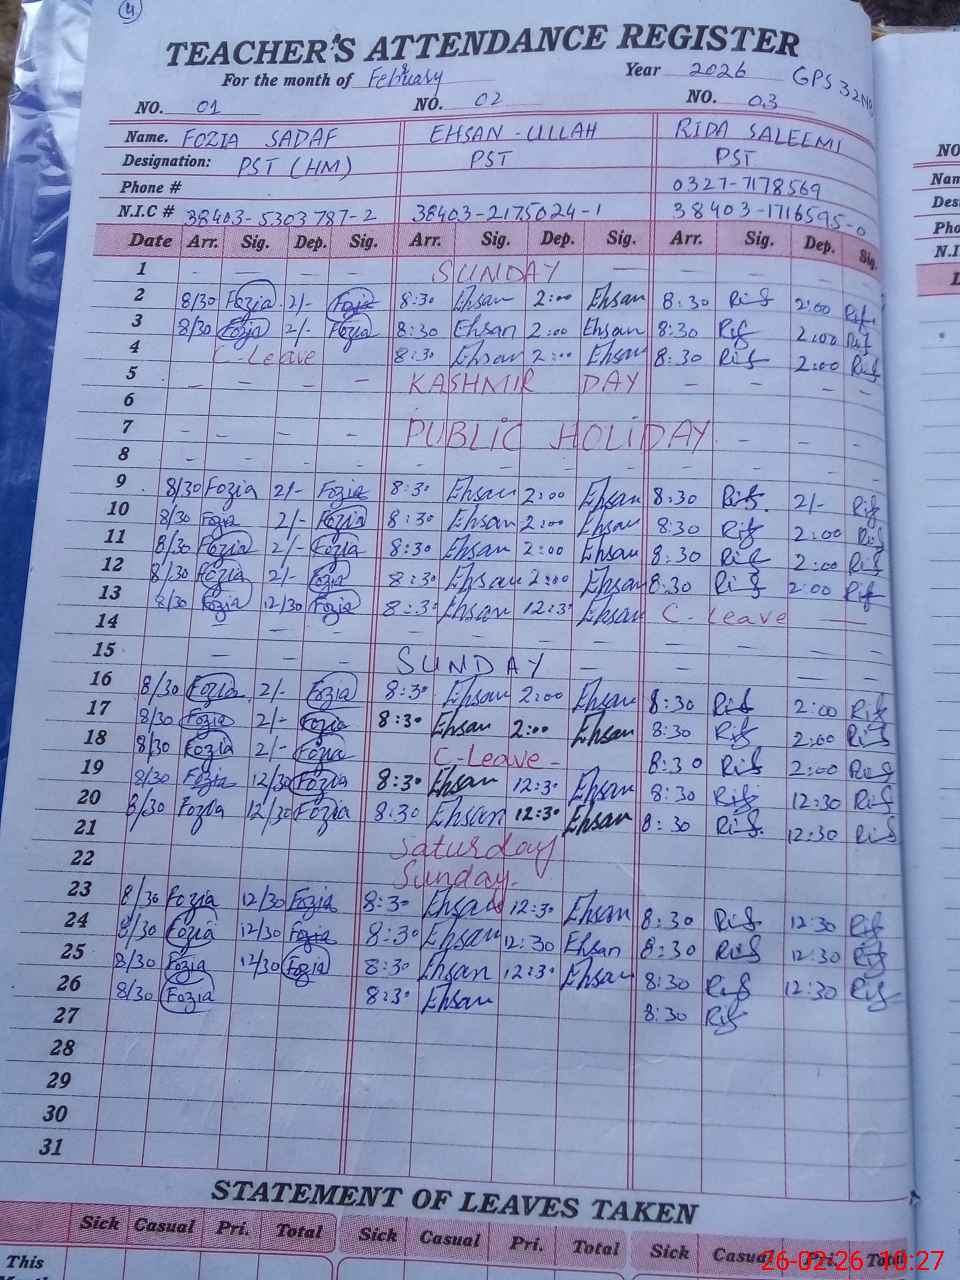 4
TEACHER'S ATTENDANCE REGISTER
For the month of February Year 2026 GPS 32NB
NO. 01 NO. 02 NO. 03
Name. FOZIA SADAF EHSAN-ULLAH RIDA SALEEMI
Designation: PST (HM) PST PST
Phone # 0327-7178569
N.I.C # 38403-5303787-2 38403-2175024-1 38403-1716595-0
Date Arr. Sig. Dep. Sig. Arr. Sig. Dep. Sig. Arr. Sig. Dep. Sig.
1 – – – – SUNDAY – – – – –
2 8/30 Fozia 2/- Fozia 8:30 Ehsan 2:00 Ehsan 8:30 Rif 2:00 Rif
3 8/30 Fozia 2/- Fozia 8:30 Ehsan 2:00 Ehsan 8:30 Rif 2:00 Rif
4 C-Leave 8:30 Ehsan 2:00 Ehsan 8:30 Rif 2:00 Rif
5 – – – – KASHMIR DAY – – – –
6
7 – – – – PUBLIC HOLIDAY – – –
8 – – – – – – – – – – – –
9 8/30 Fozia 2/- Fozia 8:30 Ehsan 2:00 Ehsan 8:30 Rif 2/- Rif
10 8/30 Fozia 2/- Fozia 8:30 Ehsan 2:00 Ehsan 8:30 Rif 2:00 Rif
11 8/30 Fozia 2/- Fozia 8:30 Ehsan 2:00 Ehsan 8:30 Rif 2:00 Rif
12 8/30 Fozia 2/- Fozia 8:30 Ehsan 2:00 Ehsan 8:30 Rif 2:00 Rif
13 8/30 Fozia 12/30 Fozia 8:30 Ehsan 12:30 Ehsan C-Leave
14 – – – – – – – – – – – –
15 – – – – SUNDAY – – – – –
16 8/30 Fozia 2/- Fozia 8:30 Ehsan 2:00 Ehsan 8:30 Rif 2:00 Rif
17 8/30 Fozia 2/- Fozia 8:30 Ehsan 2:00 Ehsan 8:30 Rif 2:00 Rif
18 8/30 Fozia 2/- Fozia C-Leave- 8:30 Rif 2:00 Rif
19 8/30 Fozia 12/30 Fozia 8:30 Ehsan 12:30 Ehsan 8:30 Rif 12:30 Rif
20 8/30 Fozia 12/30 Fozia 8:30 Ehsan 12:30 Ehsan 8:30 Rif 12:30 Rif
21 Saturday
22 Sunday.
23 8/30 Fozia 12/30 Fozia 8:30 Ehsan 12:30 Ehsan 8:30 Rif 12:30 Rif
24 8/30 Fozia 12/30 Fozia 8:30 Ehsan 12:30 Ehsan 8:30 Rif 12:30 Rif
25 8/30 Fozia 12/30 Fozia 8:30 Ehsan 12:30 Ehsan 8:30 Rif 12:30 Rif
26 8/30 Fozia 8:30 Ehsan 8:30 Rif
27
28
29
30
31
STATEMENT OF LEAVES TAKEN
Sick Casual Pri. Total Sick Casual Pri. Total Sick Casual Pri. Total
This
26-02-26 10:27